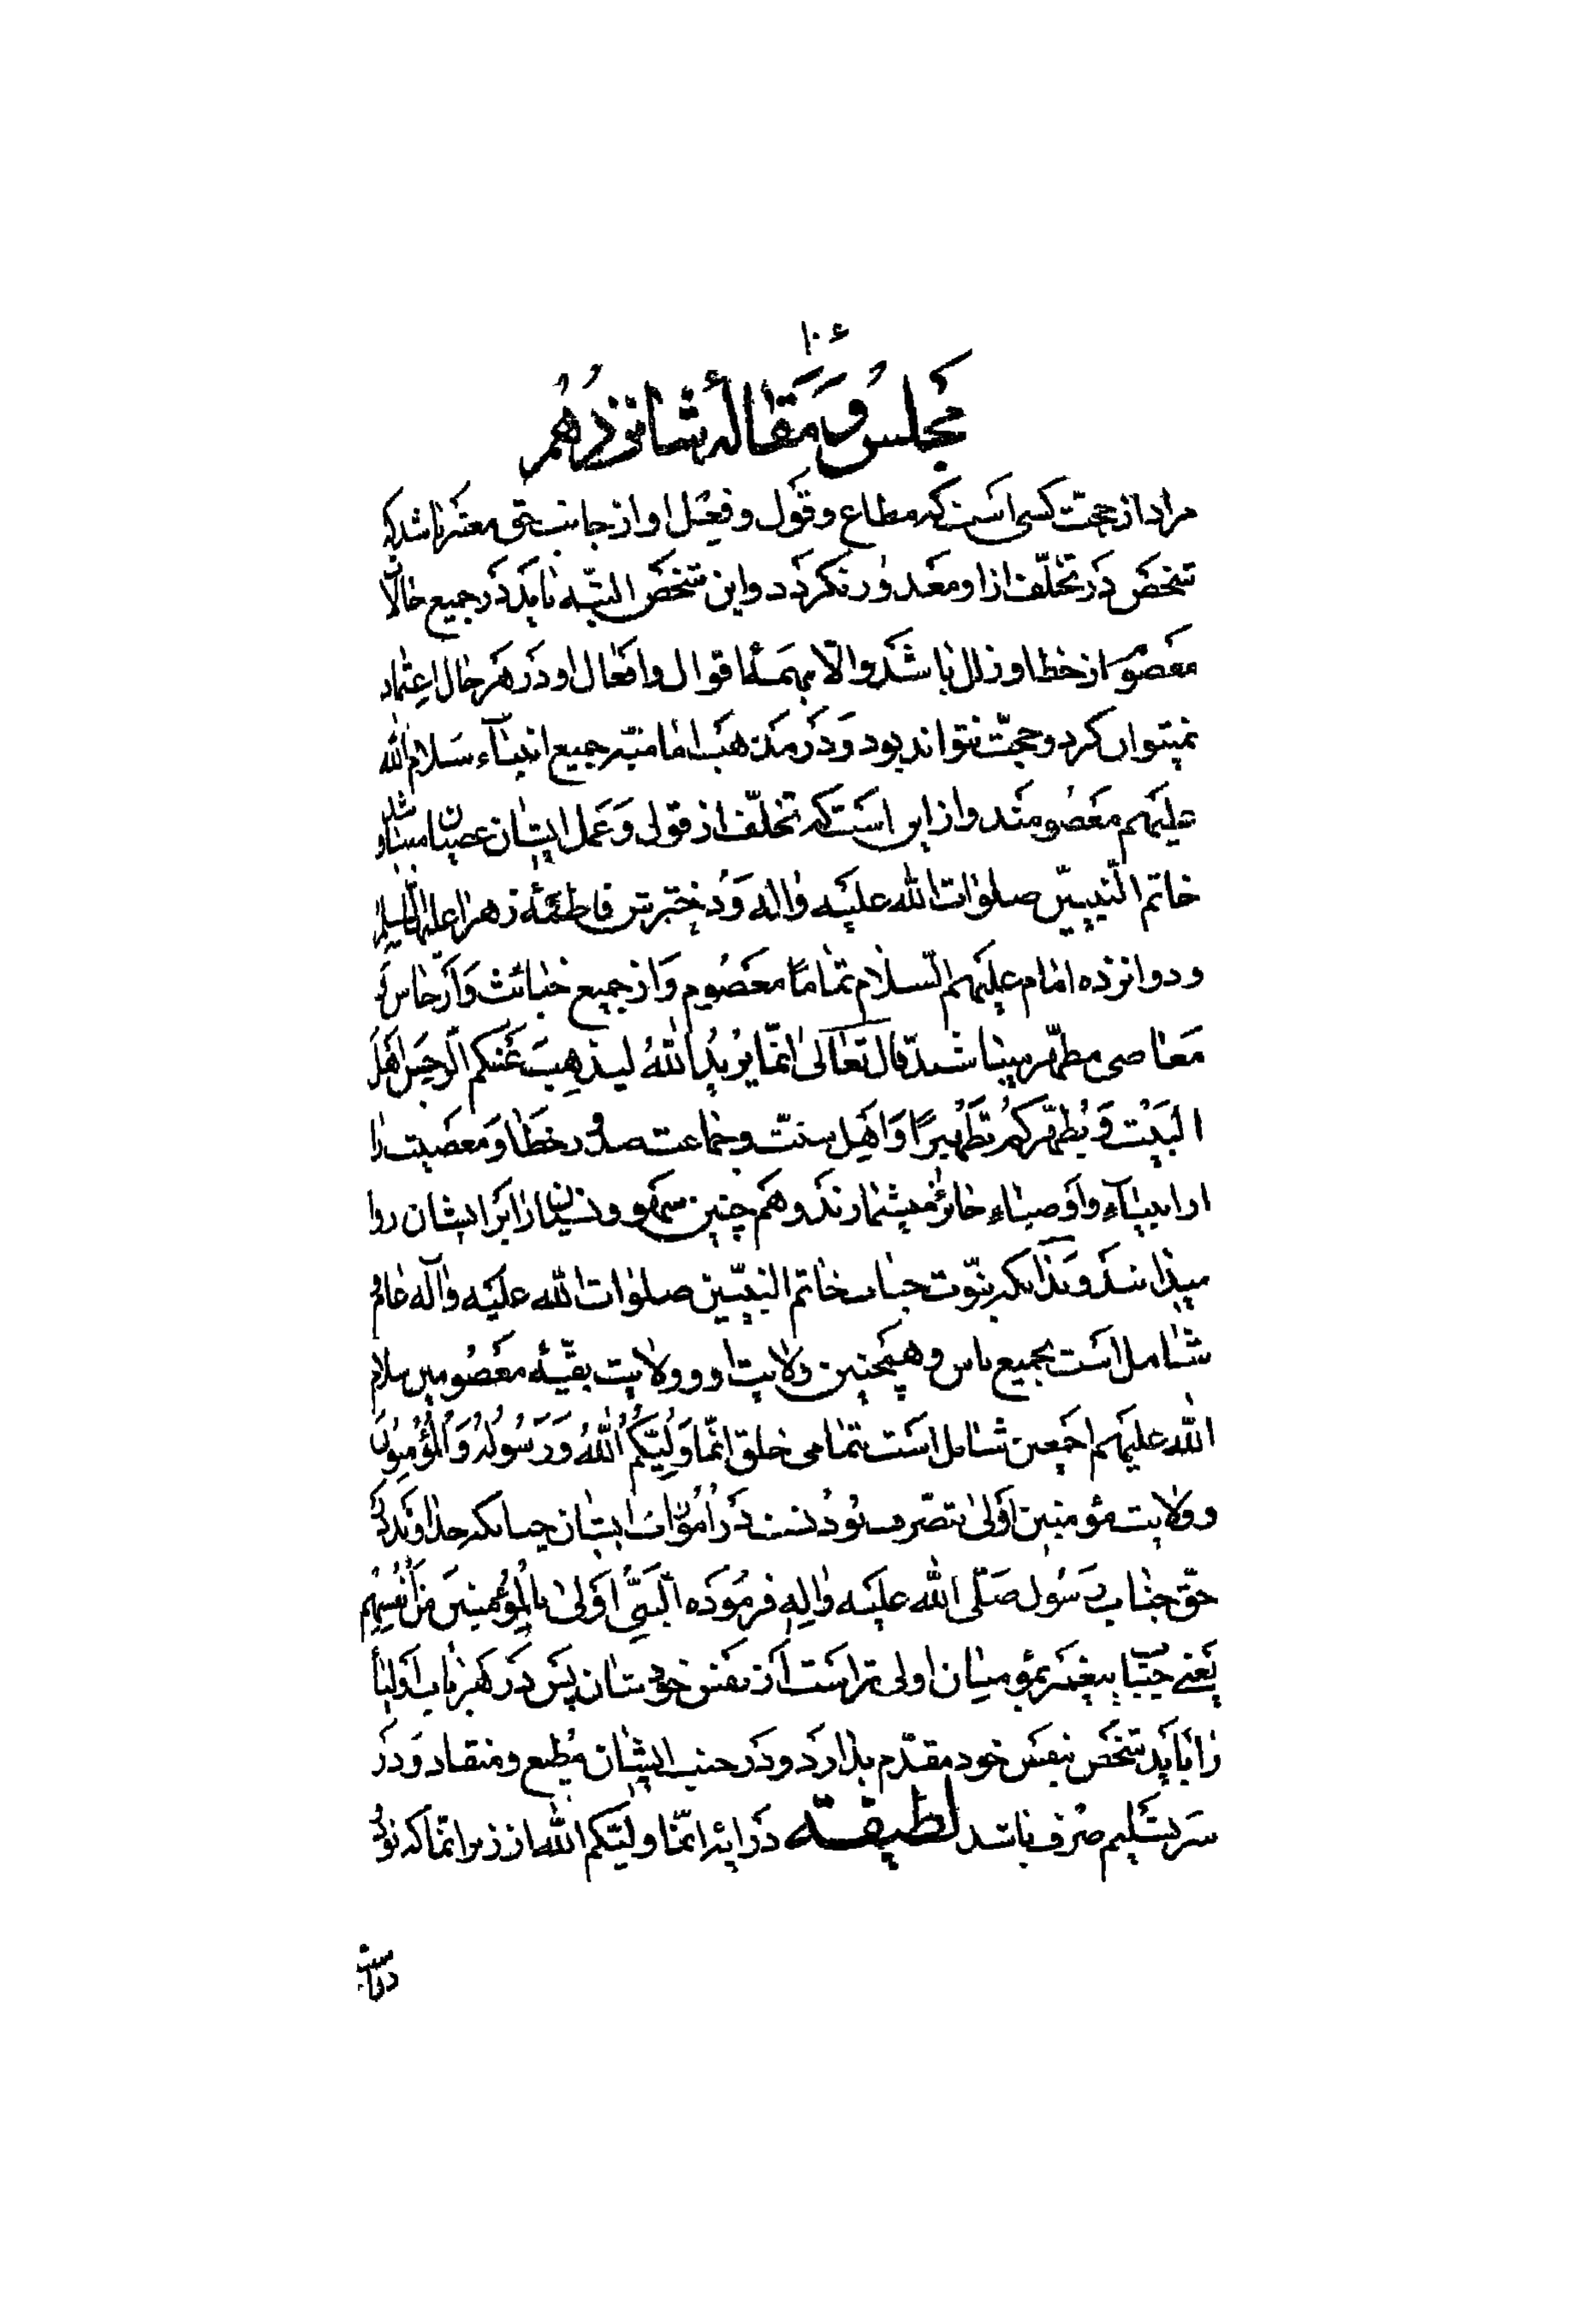 ۱۰۶
مجلس و مقالهٔ شانزدهم
مراد از حجت کسی است که مطاع و قول و فعل او از جانب حق معتبر باشد که
شخص در تخلّف از او معذور نگردد و این شخص البتّه باید در جمیع حالات
معصوم از خطا و زلل باشد والّا بهمهٔ اقوال و افعال او در هر حال اعتماد
نمیتوان کرد و حجّت نتواند بود و در مذهب امامیّه جمیع انبیآء سلام الله
علیهم معصومند و از این است که تخلّف از قول و عمل ایشان عصیان میباشد و
خاتم النّبیین صلوات الله علیه واله و دخترش فاطمهٔ زهرا علیها السلام
و دوازده امام علیهم السّلام تماماً معصوم و از جمیع خبائث و ارجاس و
معاصی مطهّر میباشند قال تعالی انّما یُریدُ اللهُ لیذهِبَ عَنکم الرّجسَ اَهلَ
البَیْت وَ یُطهّرَکُم تَطهیرًا وَ اهل سنّت و جماعت صدور خطا و معصیت را
از انبیآء و اوصیاء جائز میشمارند و هم چنین سهو و نسیان را بر ایشان روا
میدانند و بدانکه نبوّت جناب خاتم النبیّین صلوات الله علیه واله عام و
شامل است بجمیع ناس و همچنین ولایت او و ولایت بقیّهٔ معصومین سلام
الله علیهم اجمعین شامل است بتمامی خلق انّما وَلِیّکُمُ اللهُ وَ رَسُولُهُ وَ الْمُؤمِنُونَ
و ولایت مؤمنین اَولیٰ بتصرّف بودنست در اموّرات ایشان چنانکه خداوند در
حقّ جناب رسول صَلّی الله علیه واله فرموده النّبیُّ اَوْلیٰ بالْمُؤمِنینَ مِنْ اَنْفُسِهِم
یعنے جناب پیغمبر بمؤمنان اولی تر است از نفس خودشان پس در هر باب اولیا
را باید شخص بنفس خود مقدّم بدارد و در جنب ایشان مطیع و منقاد و در
سر تسلیم صرف باشد لطیفة در ایه انّما ولیّکم الله از زبر انّما که نود